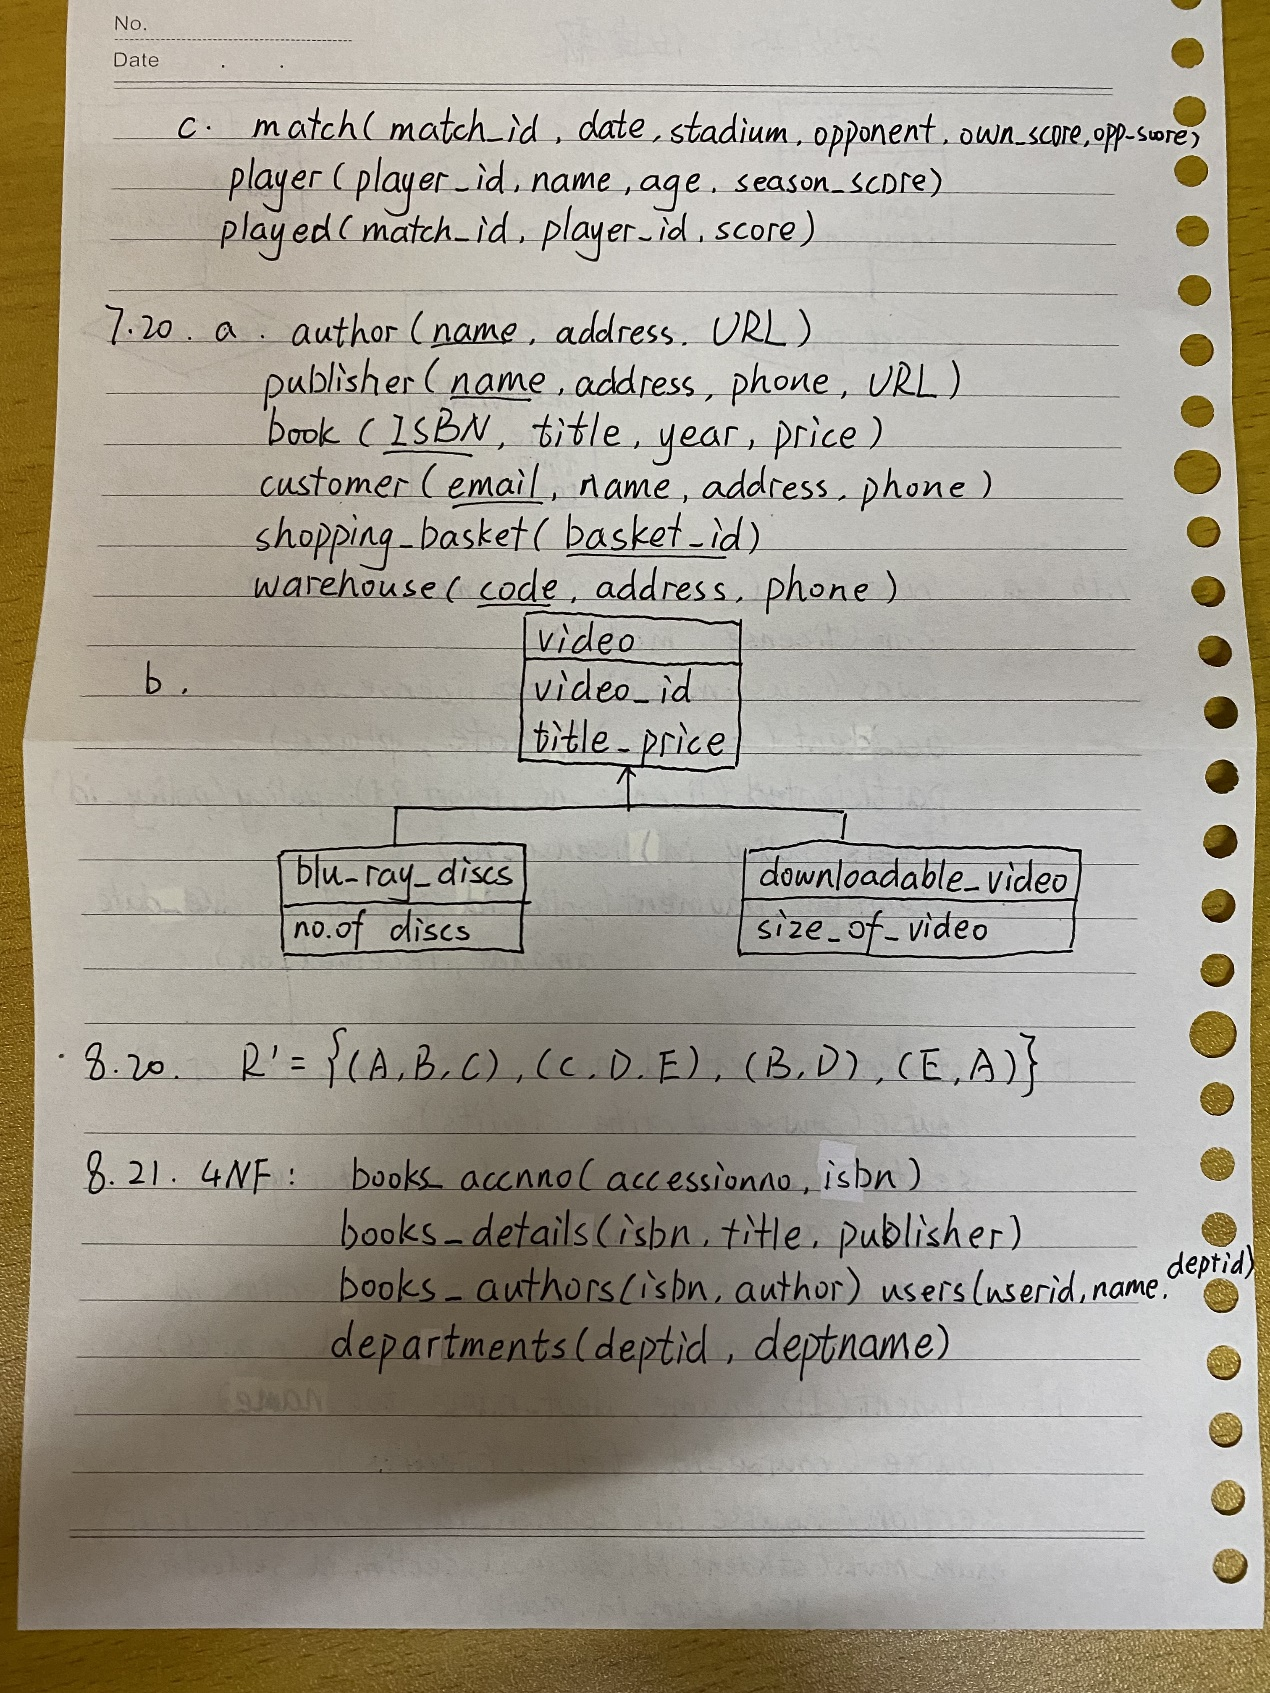 No.
Date . .
c. match( match_id, date, stadium, opponent, own_score, opp-score)
player ( player_id, name, age, season_score)
played( match_id, player_id, score)
7.20. a. author ( name, address. URL )
publisher ( name, address, phone, URL )
book ( ISBN, title, year, price )
customer ( email, name, address, phone )
shopping_basket( basket_id)
warehouse ( code, address, phone )
b.
video
video_id
title_price
blu_ray_discs
no.of discs
downloadable_video
size_of_video
8.20. R' = {(A,B,C), (C,D,E), (B,D), (E,A)}
8.21. 4NF: books_accnno( accessionno, isbn )
books_details( isbn, title, publisher)
books_authors(isbn, author) users(userid, name, deptid)
departments( deptid, deptname)